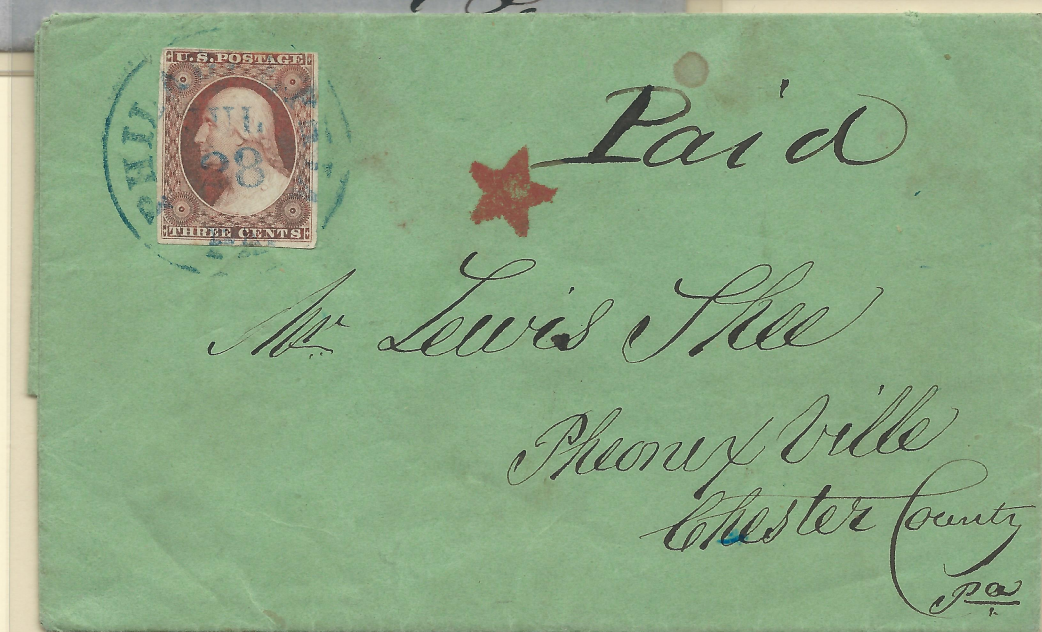 U.S. POSTAGE
JUL
28
THREE CENTS
Paid
Mr Lewis Shee
Pheonix Ville
Chester County
Pa